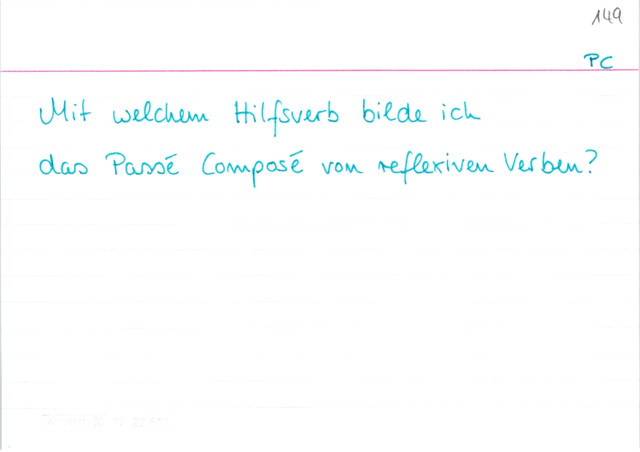 149
PC
Mit welchem Hilfsverb bilde ich
das Passé Composé von reflexiven Verben?